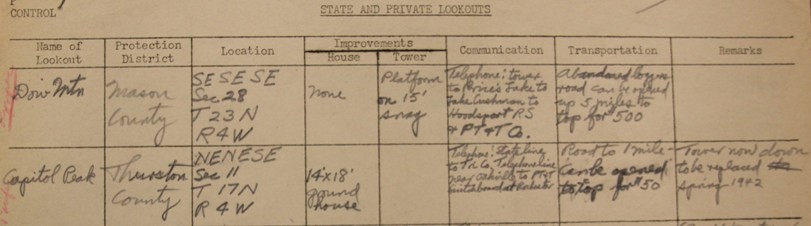 CONTROL
STATE AND PRIVATE LOOKOUTS
Name of Lookout
Protection District
Location
Improvements
House
Tower
Communication
Transportation
Remarks
Dow Mtn
Mason
County
SE SE SE
Sec 28
T 23 N
R 4 W
None
Platform
on 15'
snag
Telephone: tower
to Price's Lake to
Lake Cushman to
Hoodsport RS
& PT & T Co.
Abandoned logging
road can be opened
up 5 miles to
top for $500
Capitol Peak
Thurston
County
NE NE SE
Sec 11
T 17 N
R 4 W
14'x18'
ground
house
Telephone: State line
to Tri Co. Telephone line
near Oakville to PT&T
at Rochester
Road to 1 mile-
can be opened
to top for $50
Tower now down
to be replaced
spring 1942